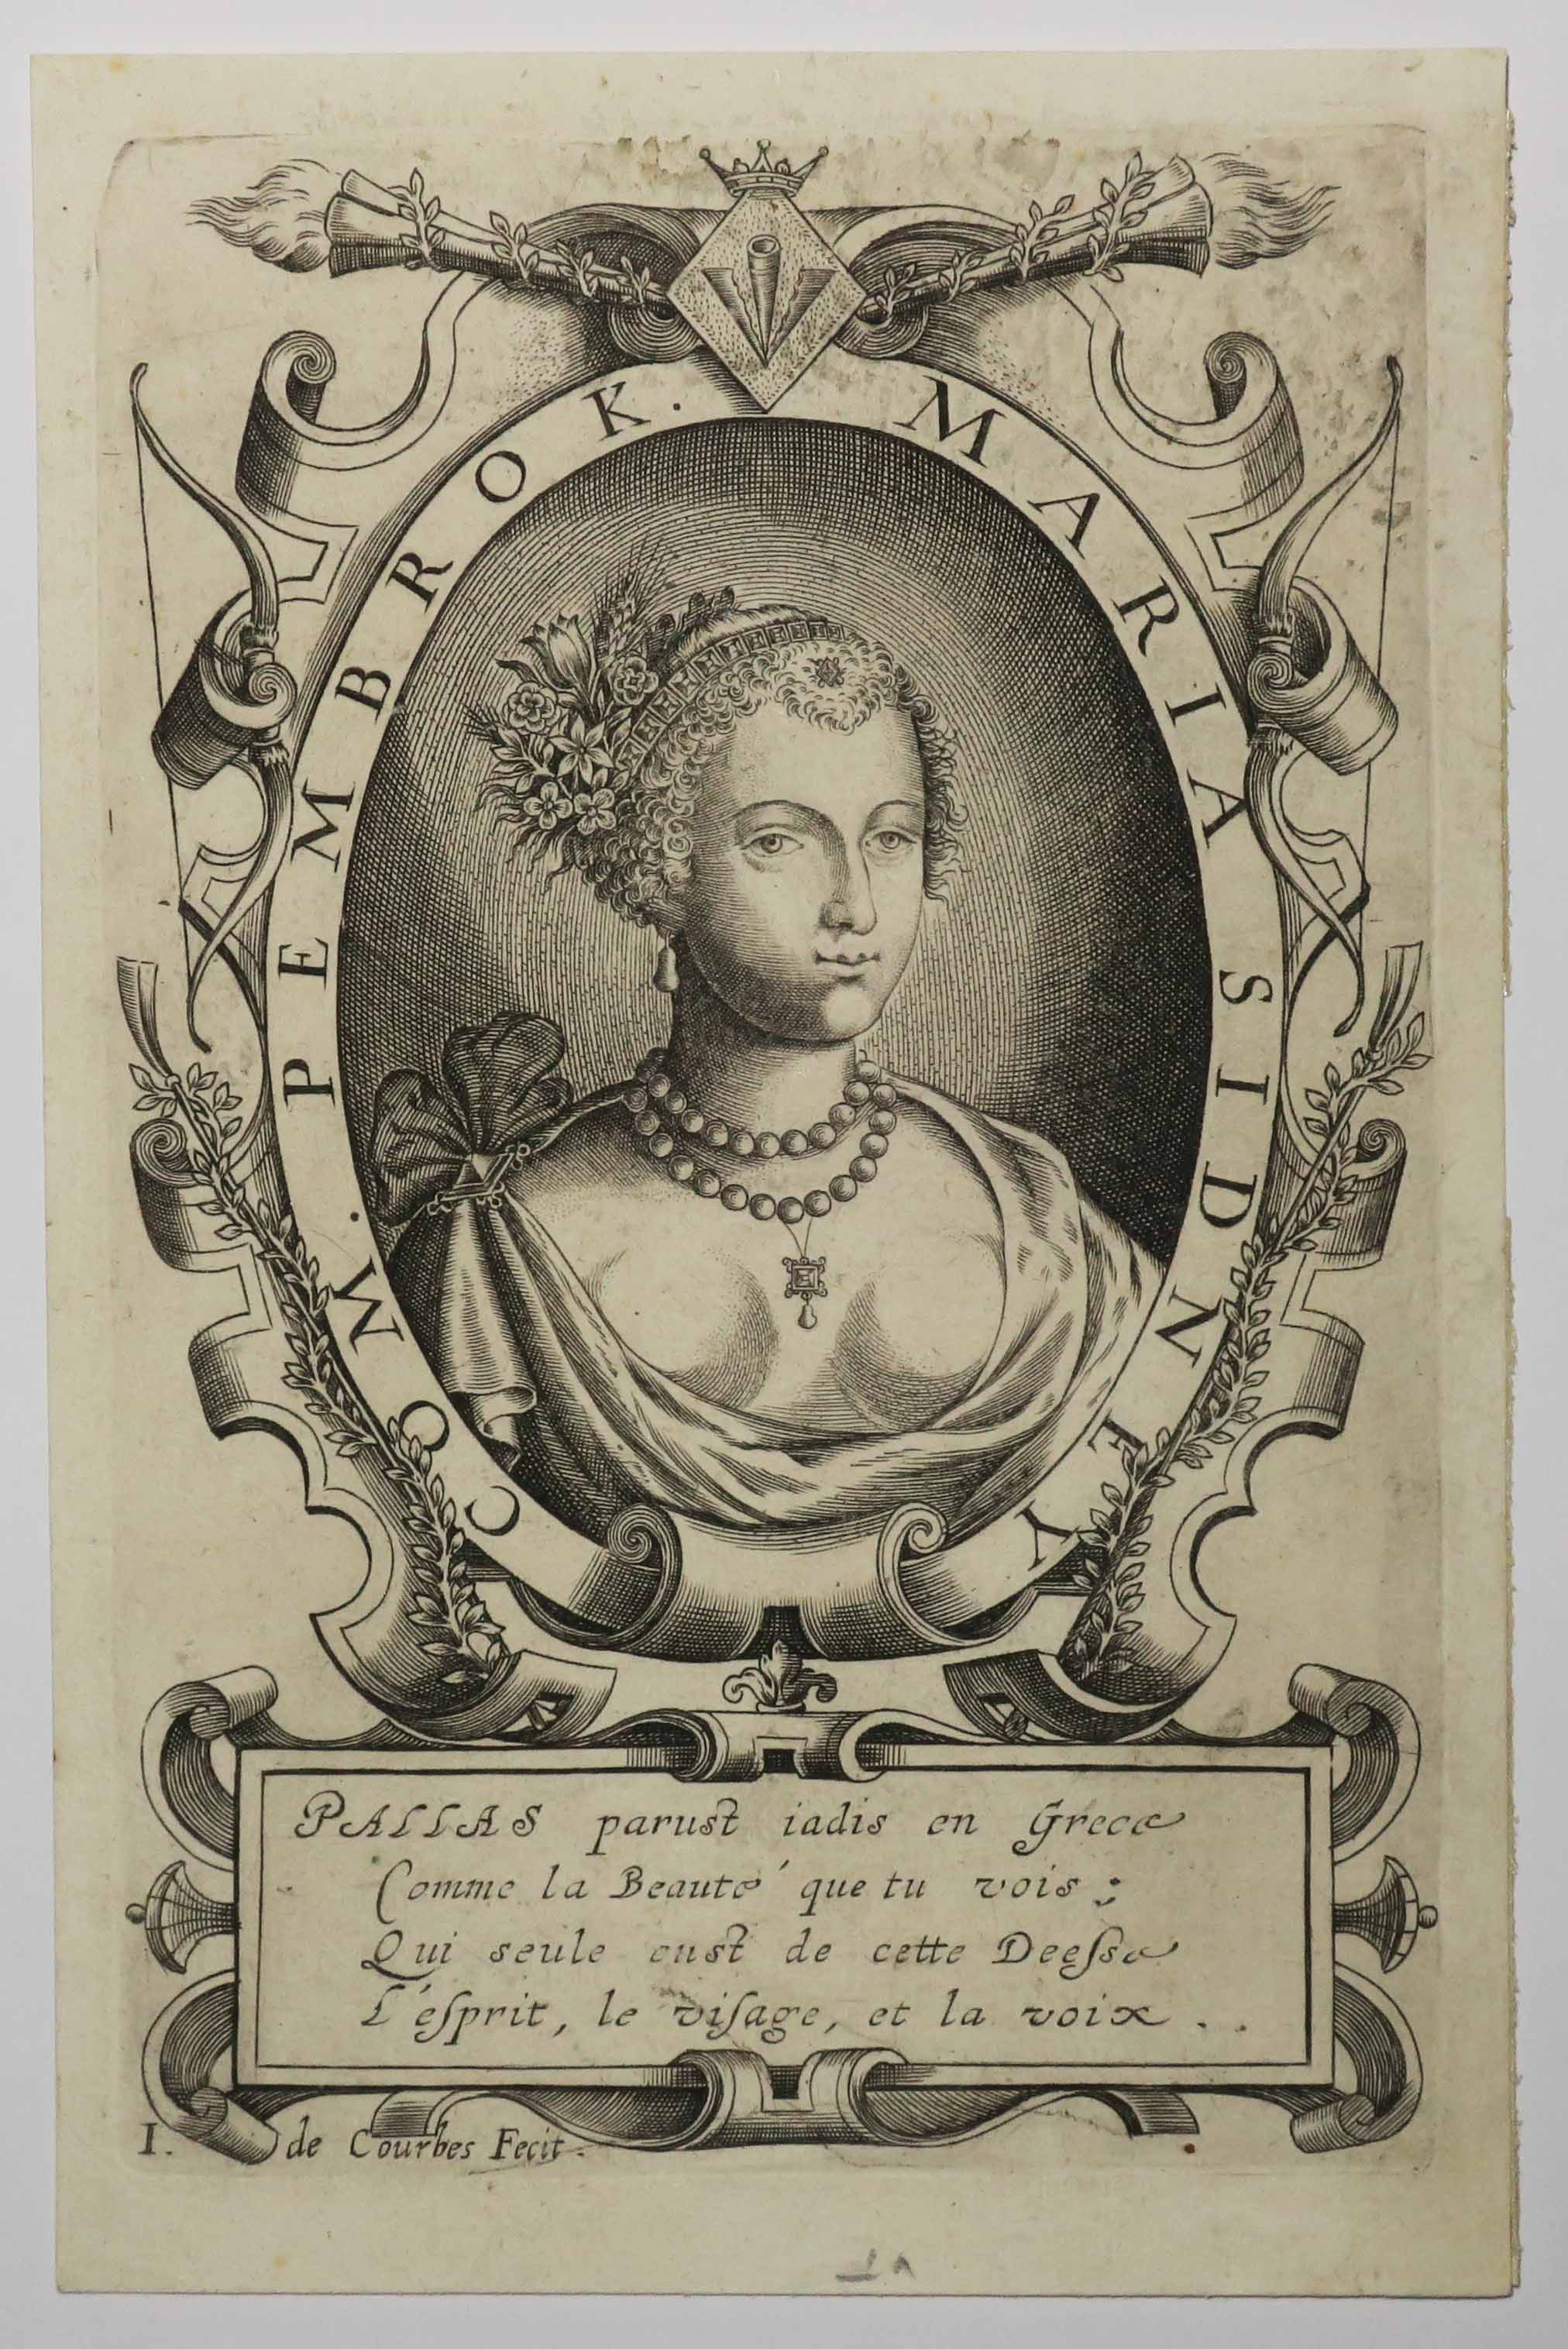 MARIA SIDNEY
COM. PEMBROK.
PALLAS paruſt iadis en Grece
Comme la Beauté que tu vois ;
Qui seule euſt de cette Deeſse
L'eſprit, le viſage, et la voix . .
I. de Courbes Fecit .